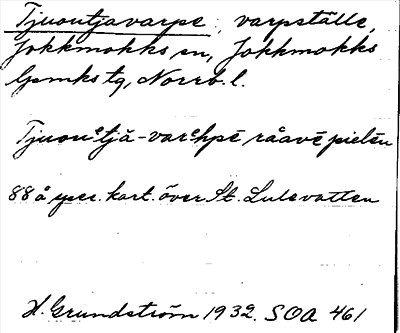 Tjuoutjavarpe; varpställe,
Jokkmokks sn, Jokkmokks
lpmks tg, Norrb. l.
Tjuoůtjȧ-varhpē råavē pielēn
88 å spec. kart. över St. Lulevatten
H. Grundström 1932. SOA 461